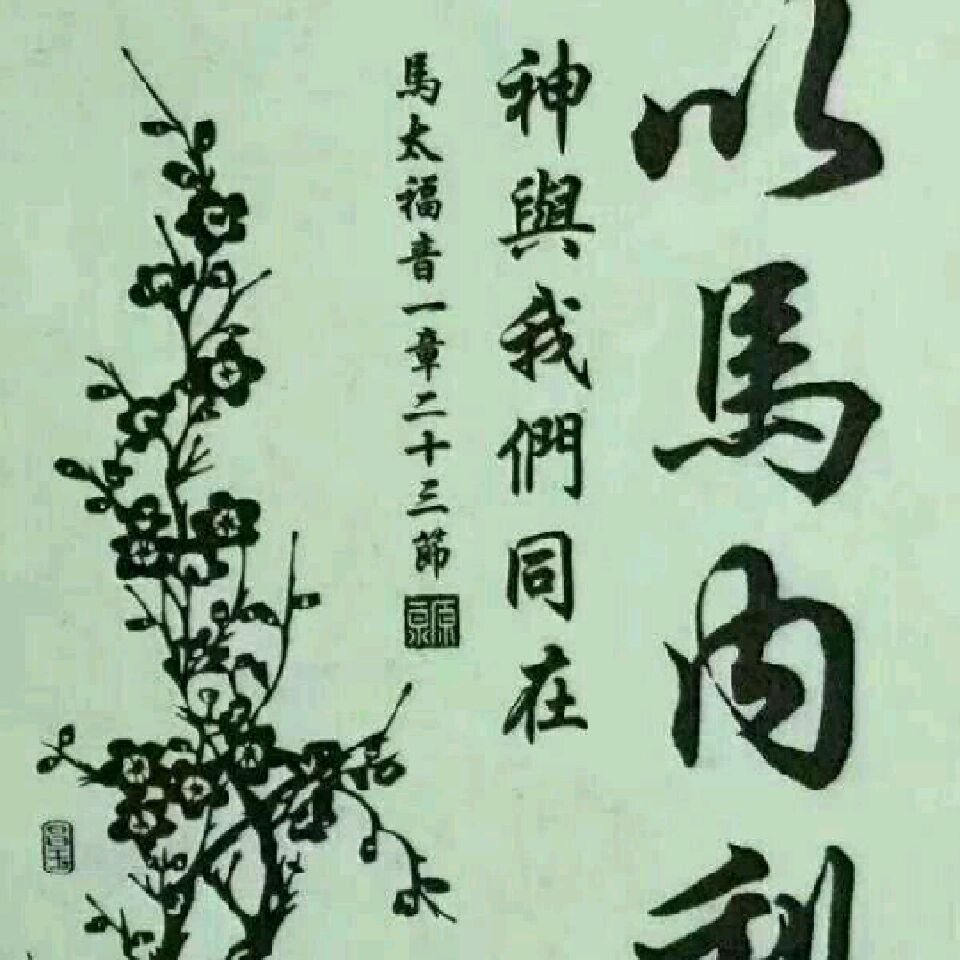 以馬內利
神與我們同在
馬太福音一章二十三節